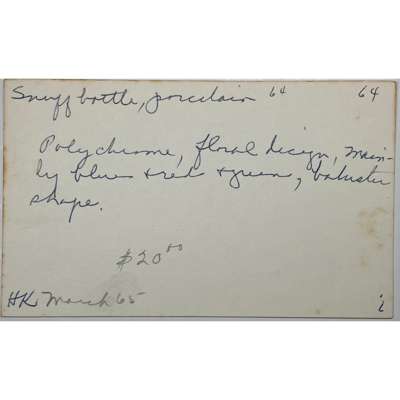 Snuff bottle, porcelain 64 64
Polychrome, floral design, main-
ly blue + red + green, baluster
shape.
$20.00
HK March 65 i